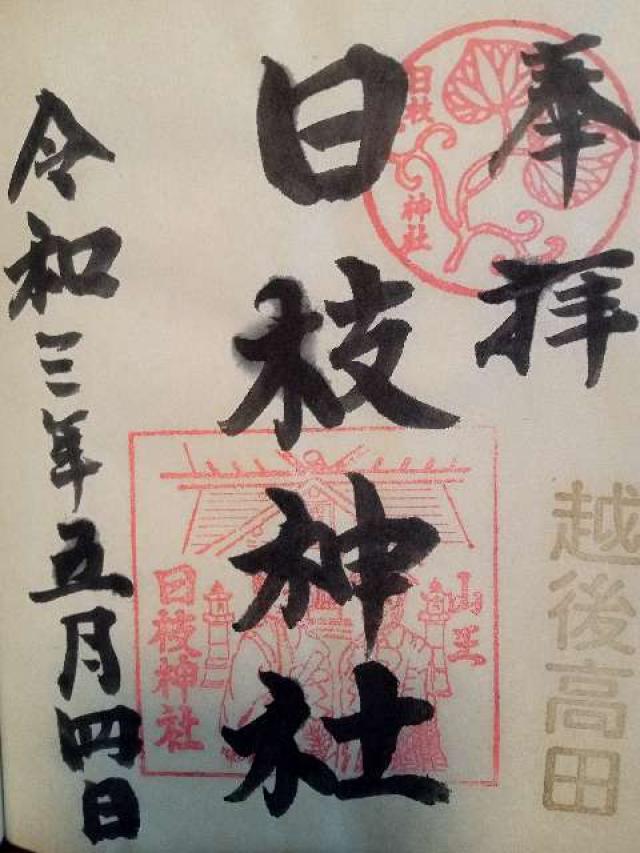 奉拝
日枝神社
越後高田
日枝神社
山王
日枝神社
令和三年五月四日